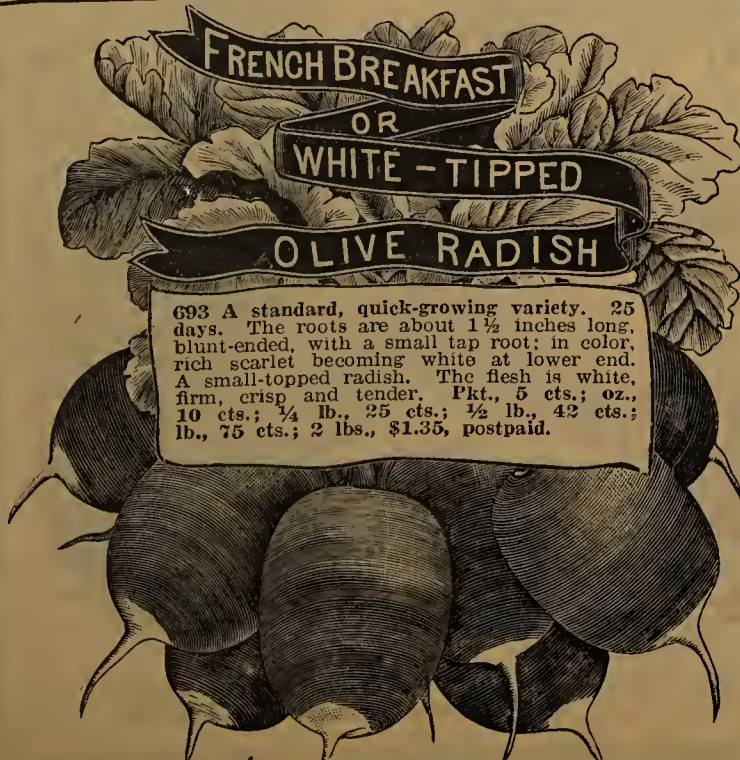 FRENCH BREAKFAST
OR
WHITE - TIPPED
OLIVE RADISH
693 A standard, quick-growing variety. 25
days. The roots are about 1½ inches long,
blunt-ended, with a small tap root; in color,
rich scarlet becoming white at lower end.
A small-topped radish. The flesh is white,
firm, crisp and tender. Pkt., 5 cts.; oz.,
10 cts.; ¼ lb., 25 cts.; ½ lb., 42 cts.;
lb., 75 cts.; 2 lbs., $1.35, postpaid.